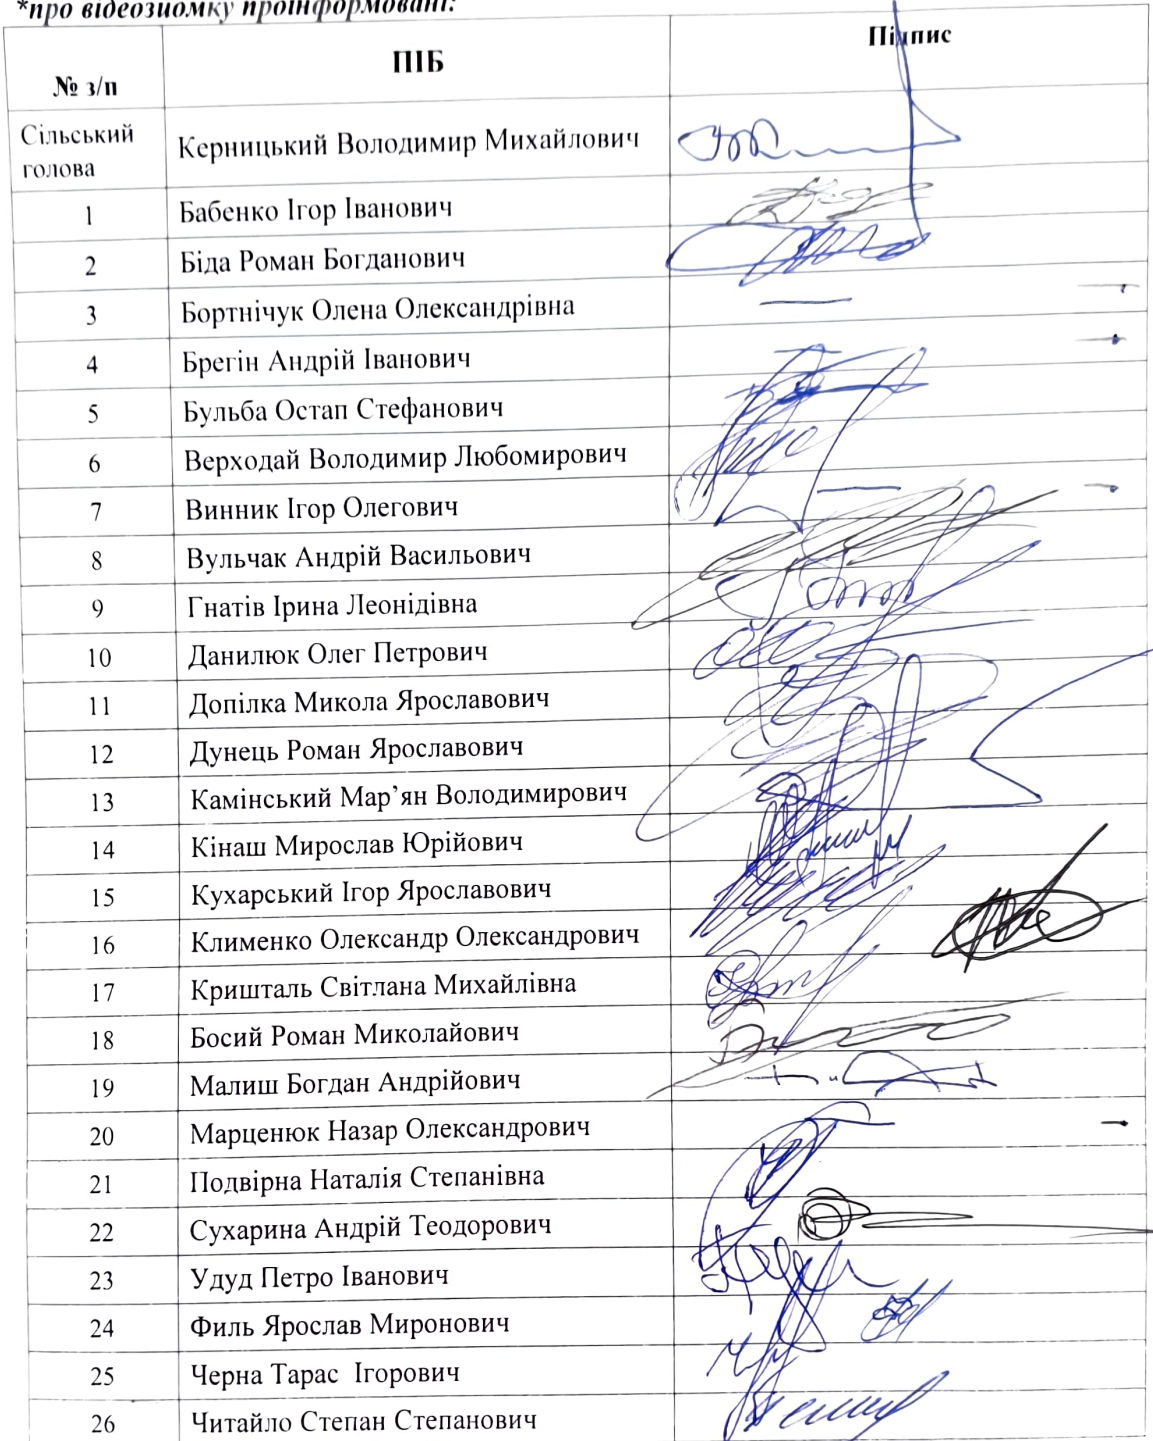 *про відеозйомку проінформовані:
№ з/п ПІБ Підпис
Сільський голова Керницький Володимир Михайлович
1 Бабенко Ігор Іванович
2 Біда Роман Богданович
3 Бортнічук Олена Олександрівна
4 Брегін Андрій Іванович
5 Бульба Остап Стефанович
6 Верходай Володимир Любомирович
7 Винник Ігор Олегович
8 Вульчак Андрій Васильович
9 Гнатів Ірина Леонідівна
10 Данилюк Олег Петрович
11 Допілка Микола Ярославович
12 Дунець Роман Ярославович
13 Камінський Мар’ян Володимирович
14 Кінаш Мирослав Юрійович
15 Кухарський Ігор Ярославович
16 Клименко Олександр Олександрович
17 Кришталь Світлана Михайлівна
18 Босий Роман Миколайович
19 Малиш Богдан Андрійович
20 Марценюк Назар Олександрович
21 Подвірна Наталія Степанівна
22 Сухарина Андрій Теодорович
23 Удуд Петро Іванович
24 Филь Ярослав Миронович
25 Черна Тарас Ігорович
26 Читайло Степан Степанович